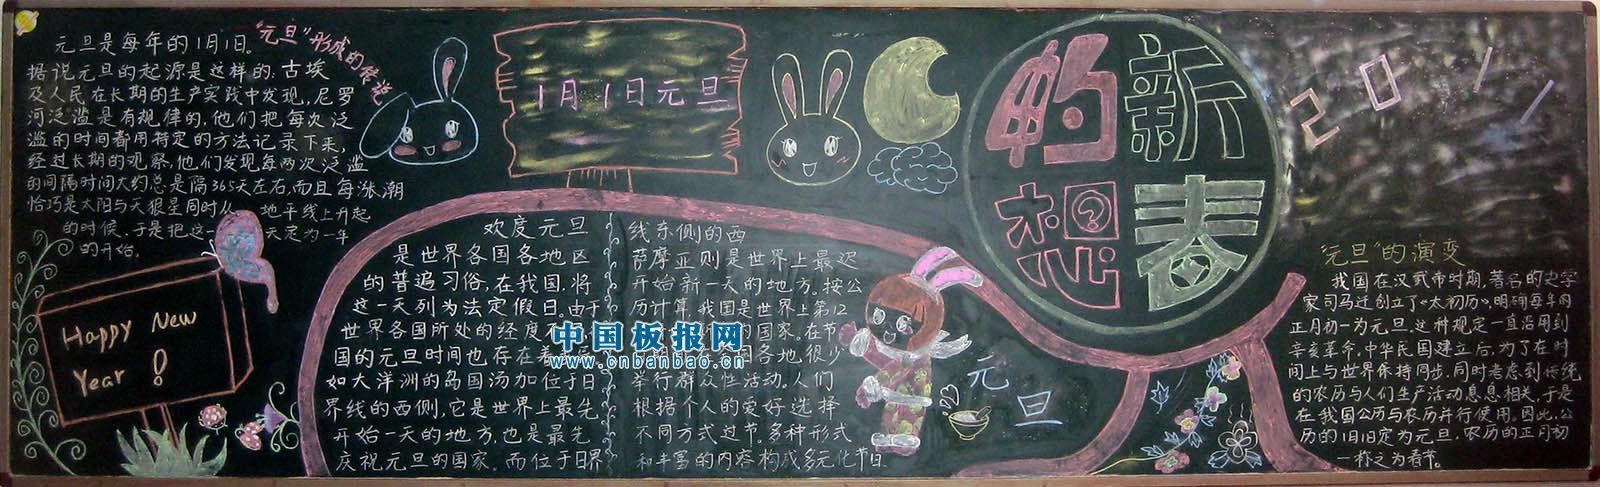 “元旦”形成的传说
元旦是每年的1月1日。
据说元旦的起源是这样的:古埃
及人民在长期的生产实践中发现,尼罗
河泛滥是有规律的,他们把每次泛
滥的时间都用特定的方法记录下来,
经过长期的观察,他们发现每两次泛滥
的间隔时间大约总是隔365天左右,而且每涨潮
恰巧是太阳与天狼星同时从 地平线上升起
的时候、于是把这一 天定为一年
的开始。
Happy New
Year !
1月1日元旦
欢度元旦
是世界各国各地区
的普遍习俗,在我国,将
这一天列为法定假日.由于
世界各国所处的经度
国的元旦时间也存在着
如大洋洲的岛国汤加位于日
界线的西侧,它是世界上最先
开始一天的地方,也是最先
庆祝元旦的国家。而位于日界
线东侧的西
萨摩亚则是世界上最迟
开始新一天的地方。按公
历计算,我国是世界上第12
的国家。在节
各地,很少
举行群众性活动,人们
根据个人的爱好选择
不同方式过节。多种形式
和丰富的内容构成多元化节日.
中国板报网
www.cnbanbao.cn
元旦
新春
的想
?
2011
“元旦”的演变
我国在汉武帝时期,著名的史学
家司马迁创立了《太初历》,明确每年的
正月初一为元旦.这种规定一直沿用到
辛亥革命,中华民国建立后,为了在时
间上与世界保持同步,同时考虑到传统
的农历与人们生产活动息息相关,于是
在我国公历与农历并行使用。因此,公
历的1月1日定为元旦,农历的正月初
一称之为春节。